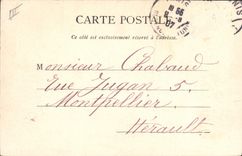 CARTE POSTALE
Ce côté est exclusivement réservé à l'adresse.
Monsieur Chabaud
Rue Jugan 5.
Montpellier
Hérault